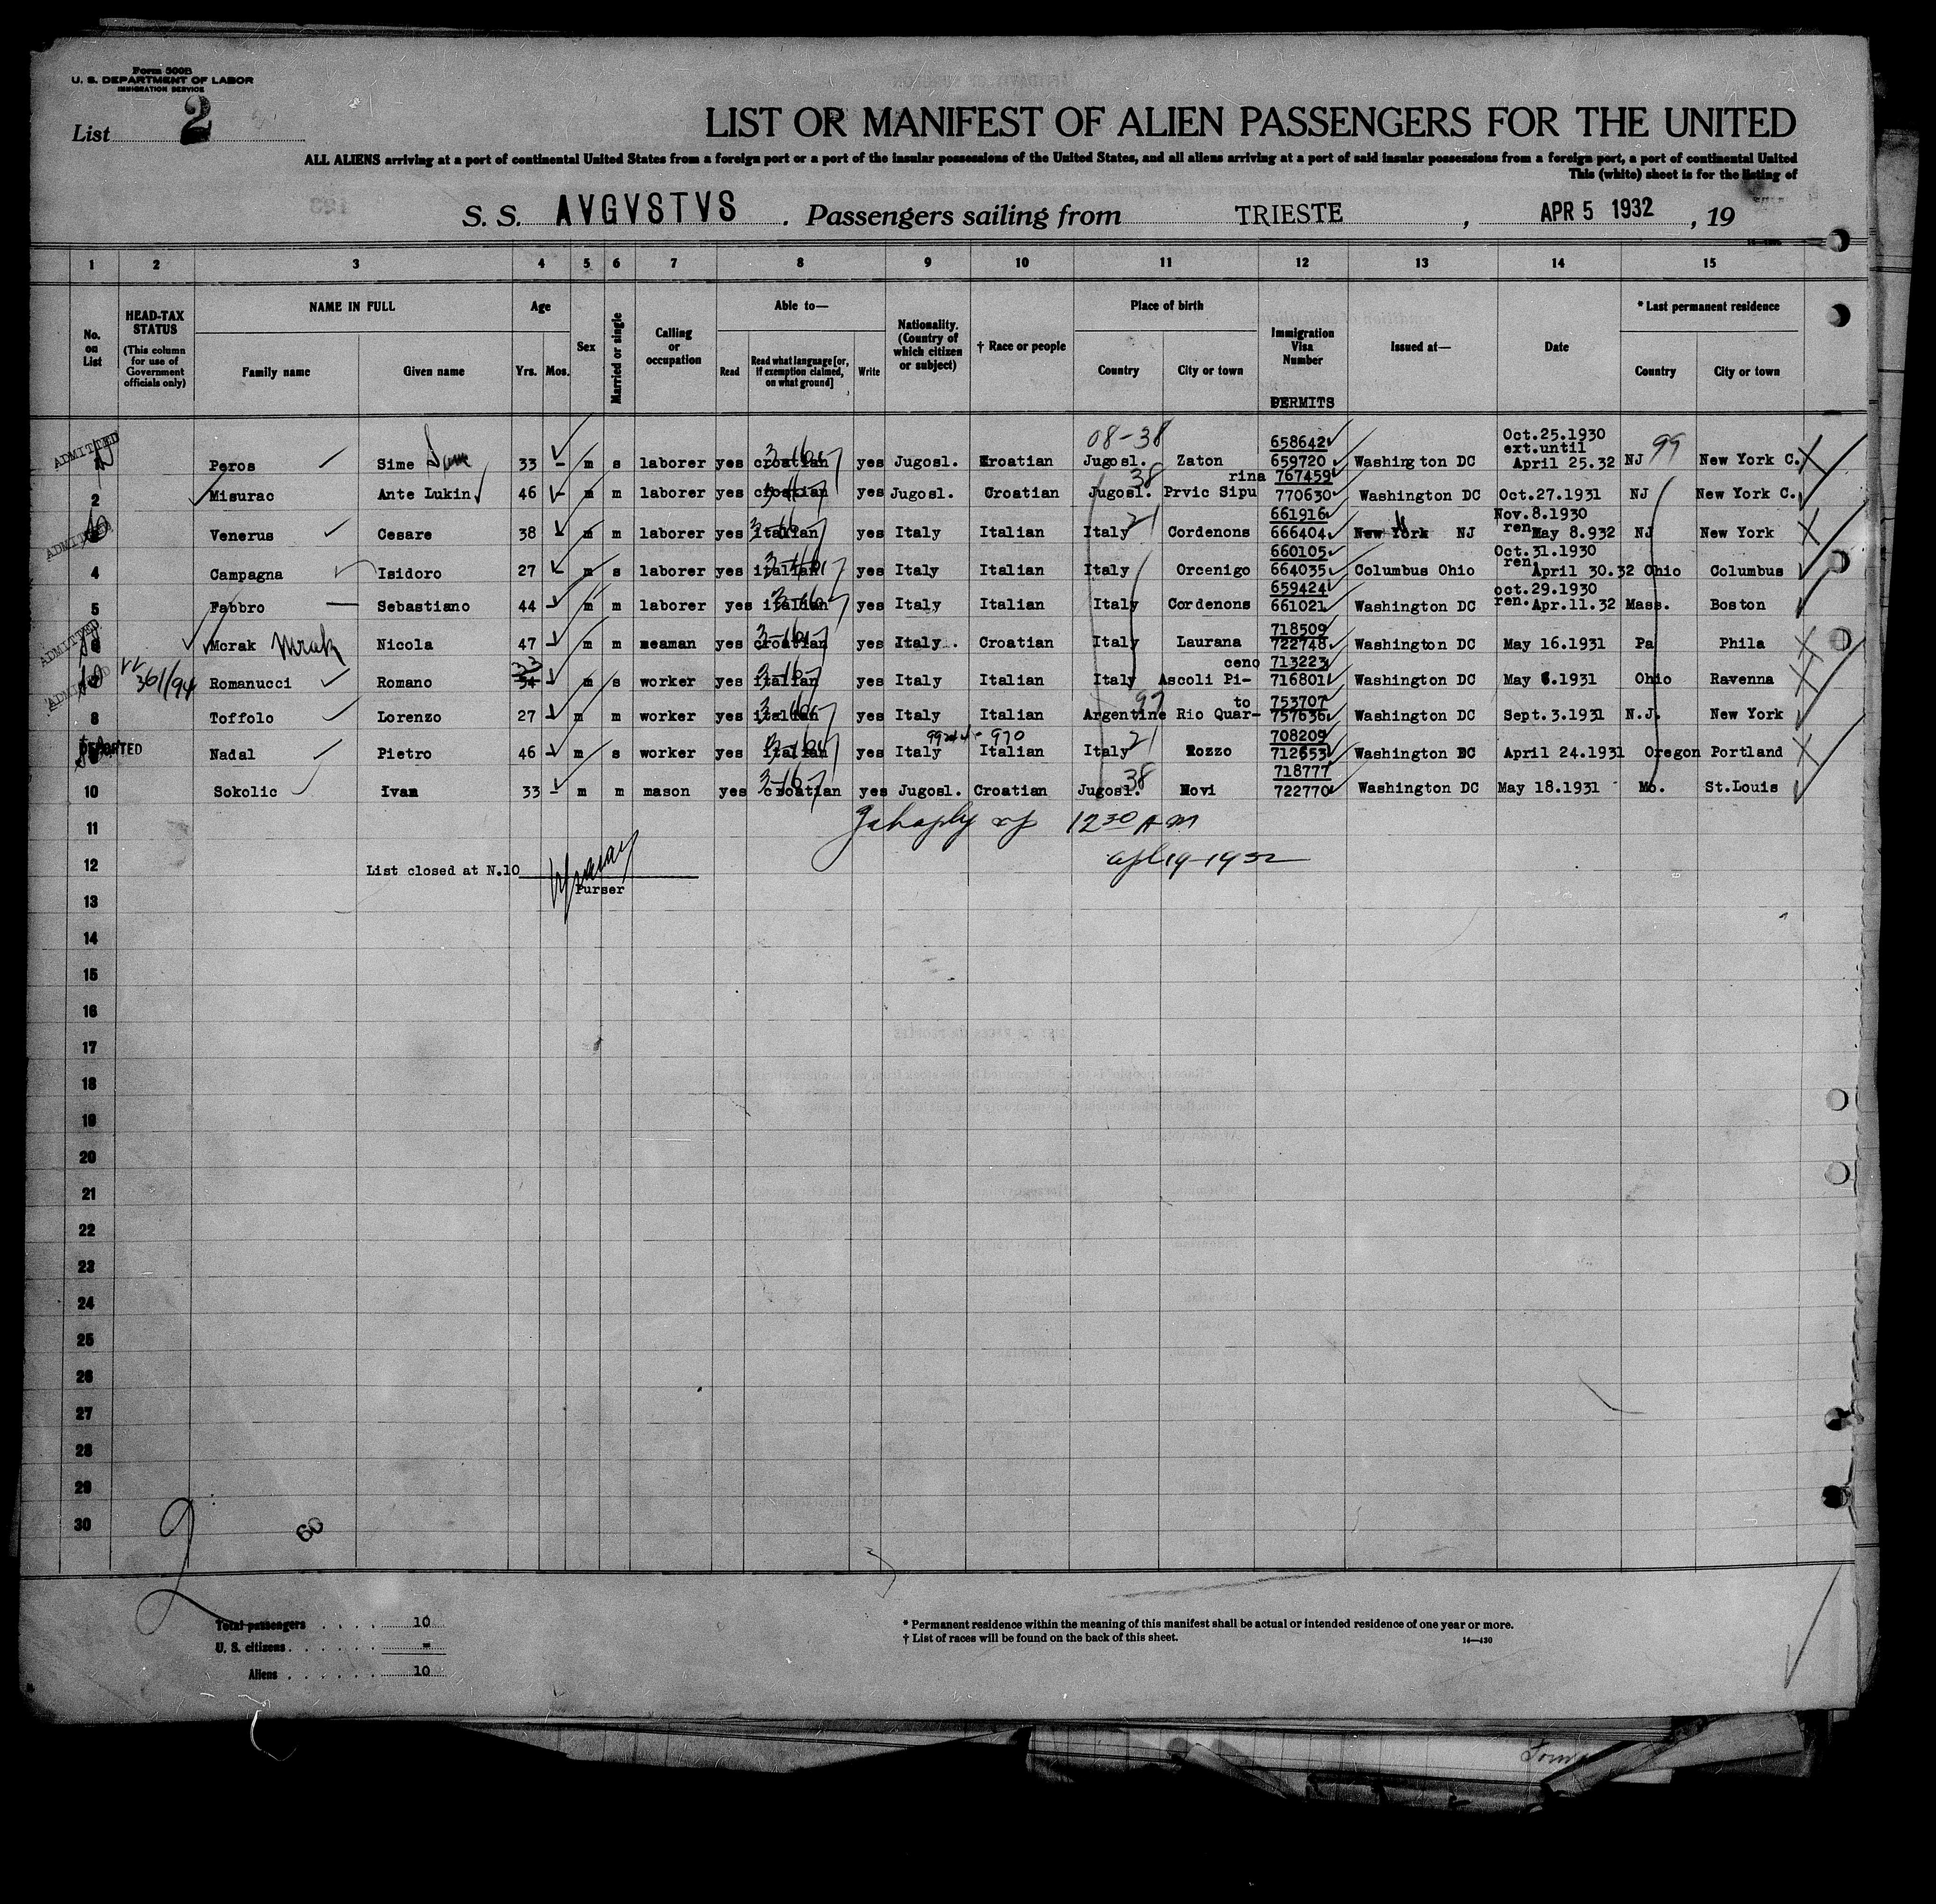 Form 500B
U. S. DEPARTMENT OF LABOR
IMMIGRATION SERVICE
List 2
LIST OR MANIFEST OF ALIEN PASSENGERS FOR THE UNITED
ALL ALIENS arriving at a port of continental United States from a foreign port or a port of the insular possessions of the United States, and all aliens arriving at a port of said insular possessions from a foreign port, a port of continental United
This (white) sheet is for the listing of
S. S. AVGVSTVS . Passengers sailing from TRIESTE , APR 5 1932 , 19
1 2 3 4 5 6 7 8 9 10 11 12 13 14 15
No. on List
HEAD-TAX STATUS (This column for use of Government officials only)
NAME IN FULL Family name Given name
Age Yrs. Mos.
Sex
Married or single
Calling or occupation
Able to— Read Read what language [or, if exemption claimed, on what ground] Write
Nationality. (Country of which citizen or subject)
† Race or people
Place of birth Country City or town
Immigration Visa Number PERMITS
Issued at—
Date
* Last permanent residence Country City or town
08-38 658642 Oct.25.1930 ext.until
ADMITTED 1 Peros Sime 33 – m s laborer yes croatian yes Jugosl. Kroatian Jugosl. Zaton 659720 Washington DC April 25.32 NJ 99 New York C.
38 rina 767459
2 Misurac Ante Lukin 46 – m m laborer yes croatian yes Jugosl. Croatian Jugosl. Prvic Sipu 770630 Washington DC Oct.27.1931 NJ New York C.
661916 Nov.8.1930
ADMITTED 3 Venerus Cesare 38 m m laborer yes italian yes Italy Italian Italy 21 Cordenons 666404 New York NJ ren May 8.932 NJ New York
660105 Oct.31.1930
4 Campagna Isidoro 27 – m s laborer yes italian yes Italy Italian Italy Orcenigo 664035 Columbus Ohio ren. April 30.32 Ohio Columbus
659424 oct.29.1930
5 Fabbro Sebastiano 44 – m m laborer yes italian yes Italy Italian Italy Cordenons 661021 Washington DC ren. Apr.11.32 Mass. Boston
718509
ADMITTED 6 Morak Mrak Nicola 47 – m m seaman yes croatian yes Italy. Croatian Italy Laurana 722748 Washington DC May 16.1931 Pa Phila
33 ceno 713223
ADMITTED 7 361/94 Romanucci Romano 34 – m s worker yes italian yes Italy Italian Italy Ascoli Pi- 716801 Washington DC May 6.1931 Ohio Ravenna
to 753707
8 Toffolo Lorenzo 27 – m m worker yes italian yes Italy Italian Argentine Rio Quar- 757636 Washington DC Sept.3.1931 N.J. New York
970 708209
9 Nadal Pietro 46 – m s worker yes italian yes Italy Italian Italy 21 Rozzo 712653 Washington DC April 24.1931 Oregon Portland
718777
10 Sokolic Ivan 33 – m m mason yes croatian yes Jugosl. Croatian Jugosl. 38 Novi 722770 Washington DC May 18.1931 Mo. St.Louis
11 12 30 AM
12 List closed at N.10 19-1932
Purser
13
14
15
16
17
18
19
20
21
22
23
24
25
26
27
28
29
30
2 60
Total passengers . . . . 10
U. S. citizens . . . . . . =
Aliens . . . . . . 10
* Permanent residence within the meaning of this manifest shall be actual or intended residence of one year or more.
† List of races will be found on the back of this sheet.
14—430